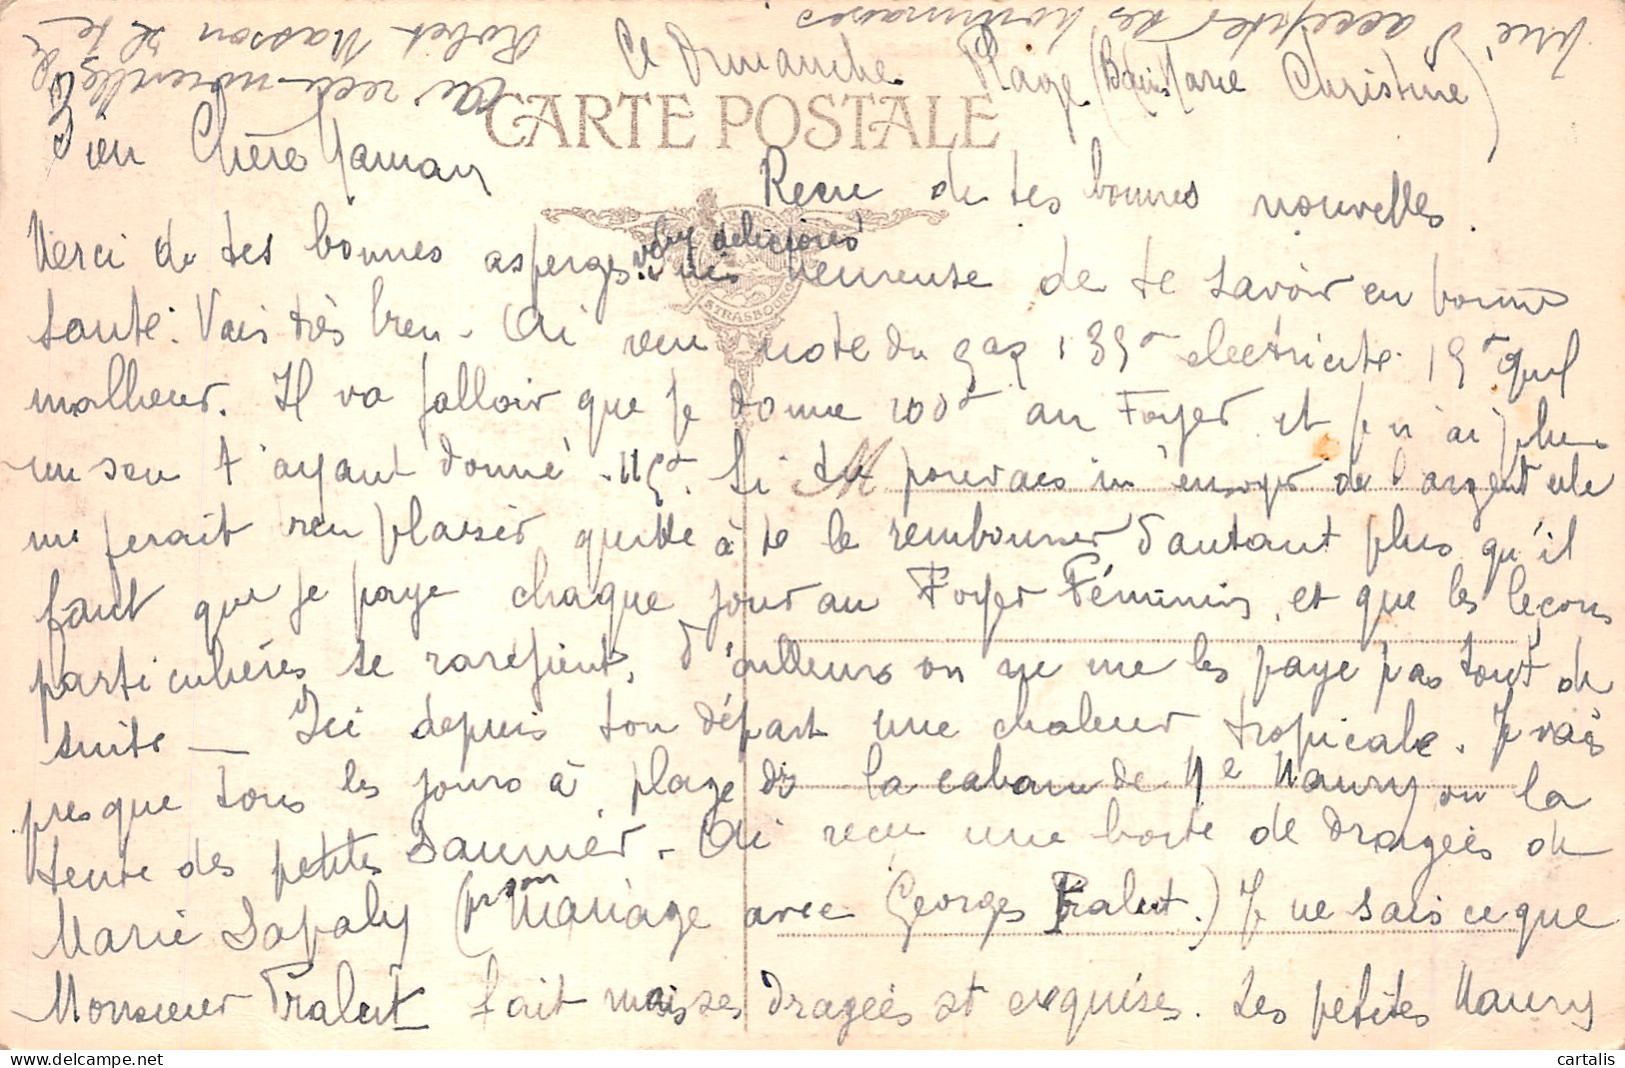 Ce Dimanche. Plage (Bains Marie Christine)
CARTE POSTALE
Bien Chère Maman
Reçu de tes bonnes nouvelles.
Merci de tes bonnes asperges délicieuses
STRASBOURG
suis heureuse de te savoir en bonne
santé. Vais très bien. Ai reçu note du gaz 135f électricité 15f quel
malheur. Il va falloir que je donne 100f au Foyer et je n'ai plus
un sou t'ayant donné 115f. Si tu pouvais m'envoyer de l'argent cela
me ferait plaisir quitte à te le rembourser d'autant plus qu'il
faut que je paye chaque jour au Foyer Féminin, et que les leçons
particulières se raréfient, d'ailleurs on ne me les paye pas tout de
suite — Ici depuis ton départ une chaleur tropicale. Je vais
presque tous les jours à plage de la cabane de Me Maury ou la
tente des petites Saunier. Ai reçu une boîte de dragées de
Marie Lapaly (pr son mariage avec Georges Fralut.) Je ne sais ce que
Monsieur Fralut fait mais ses dragées st exquises. Les petites Maury
prié d'accepter ses hommages
Robert Masson et te
cartalis